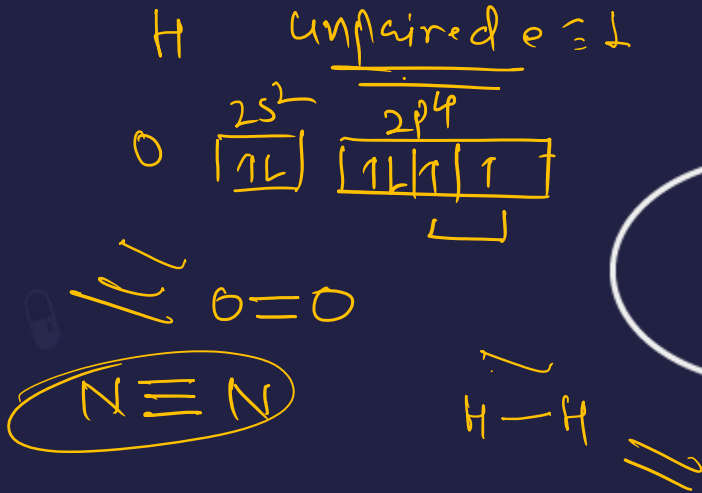 H unpaired e = 1
2s² 2p⁴
O 1L 1L 1 1
O=O
N≡N
H—H